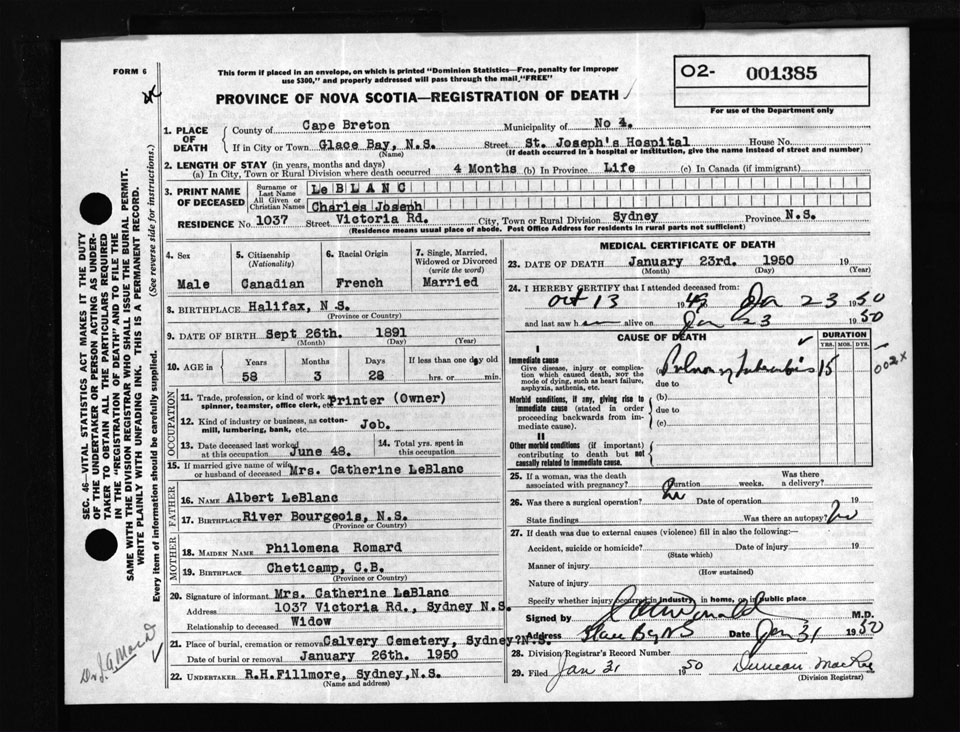 FORM 6
This form if placed in an envelope, on which is printed "Dominion Statistics—Free, penalty for improper
use $300," and properly addressed will pass through the mail "FREE"
O2- 001385
For use of the Department only
PROVINCE OF NOVA SCOTIA—REGISTRATION OF DEATH
1. PLACE OF DEATH
County of Cape Breton Municipality of No 4.
If in City or Town Glace Bay, N.S. Street St. Joseph's Hospital House No.
(Name) (If death occurred in a hospital or institution, give the name instead of street and number)
2. LENGTH OF STAY (in years, months and days)
(a) In City, Town or Rural Division where death occurred 4 Months (b) In Province Life (c) In Canada (if immigrant)
3. PRINT NAME OF DECEASED
Surname or Last Name LeBLANC
All Given or Christian Names Charles Joseph
RESIDENCE No. 1037 Street Victoria Rd. City, Town or Rural Division Sydney Province N.S.
(Residence means usual place of abode. Post Office Address for residents in rural parts not sufficient)
4. Sex
Male
5. Citizenship (Nationality)
Canadian
6. Racial Origin
French
7. Single, Married, Widowed or Divorced (write the word)
Married
8. BIRTHPLACE Halifax, N.S.
(Province or Country)
9. DATE OF BIRTH Sept 26th. 1891
(Month) (Day) (Year)
10. AGE in Years Months Days If less than one day old
58 3 28 hrs. or min.
OCCUPATION
11. Trade, profession, or kind of work as spinner, teamster, office clerk, etc. Printer (Owner)
12. Kind of industry or business, as cotton-mill, lumbering, bank, etc. Job.
13. Date deceased last worked at this occupation June 48.
14. Total yrs. spent in this occupation
15. If married give name of wife or husband of deceased Mrs. Catherine LeBlanc
FATHER
16. NAME Albert LeBlanc
17. BIRTHPLACE River Bourgeois, N.S.
(Province or Country)
MOTHER
18. MAIDEN NAME Philomena Romard
19. BIRTHPLACE Cheticamp, C.B.
(Province or Country)
20. Signature of informant Mrs. Catherine LeBlanc
Address 1037 Victoria Rd., Sydney N.S.
Relationship to deceased Widow
21. Place of burial, cremation or removal Calvery Cemetery, Sydney N.S.
Date of burial or removal January 26th. 1950
22. UNDERTAKER R.H.Fillmore, Sydney,N.S.
(Name and address)
MEDICAL CERTIFICATE OF DEATH
23. DATE OF DEATH January 23rd. 1950 19
(Month) (Day) (Year)
24. I HEREBY CERTIFY that I attended deceased from:
Oct 13 1949 Jan 23 1950
and last saw h im alive on Jan 23 1950
CAUSE OF DEATH
DURATION
YRS. MOS. DYS.
I
Immediate cause
Give disease, injury or complication which caused death, not the mode of dying, such as heart failure, asphyxia, asthenia, etc.
(a) Pulmonary Tuberculosis 15
002X
due to
Morbid conditions, if any, giving rise to immediate cause (stated in order proceeding backwards from immediate cause).
(b)
due to
(c)
II
Other morbid conditions (if important) contributing to death but not causally related to immediate cause.
25. If a woman, was the death associated with pregnancy? Duration weeks. Was there a delivery?
26. Was there a surgical operation? No Date of operation 19
State findings Was there an autopsy? No
27. If death was due to external causes (violence) fill in also the following:—
Accident, suicide or homicide? Date of injury 19
(State which)
Manner of injury
(How sustained)
Nature of injury
Specify whether injury occurred in industry, in home, or in public place
Signed by M.D.
Address Glace Bay NS Date Jan 31 1950
28. Division Registrar's Record Number
29. Filed Jan 31 1950 Duncan MacRae
(Division Registrar)
SEC. 46—VITAL STATISTICS ACT MAKES IT THE DUTY
OF THE UNDERTAKER OR PERSON ACTING AS UNDER-
TAKER TO OBTAIN ALL THE PARTICULARS REQUIRED
IN THE "REGISTRATION OF DEATH" AND TO FILE THE
SAME WITH THE DIVISION REGISTRAR WHO SHALL ISSUE THE BURIAL PERMIT.
WRITE PLAINLY WITH UNFADING INK. THIS IS A PERMANENT RECORD.
Every item of information should be carefully supplied. (See reverse side for instructions.)